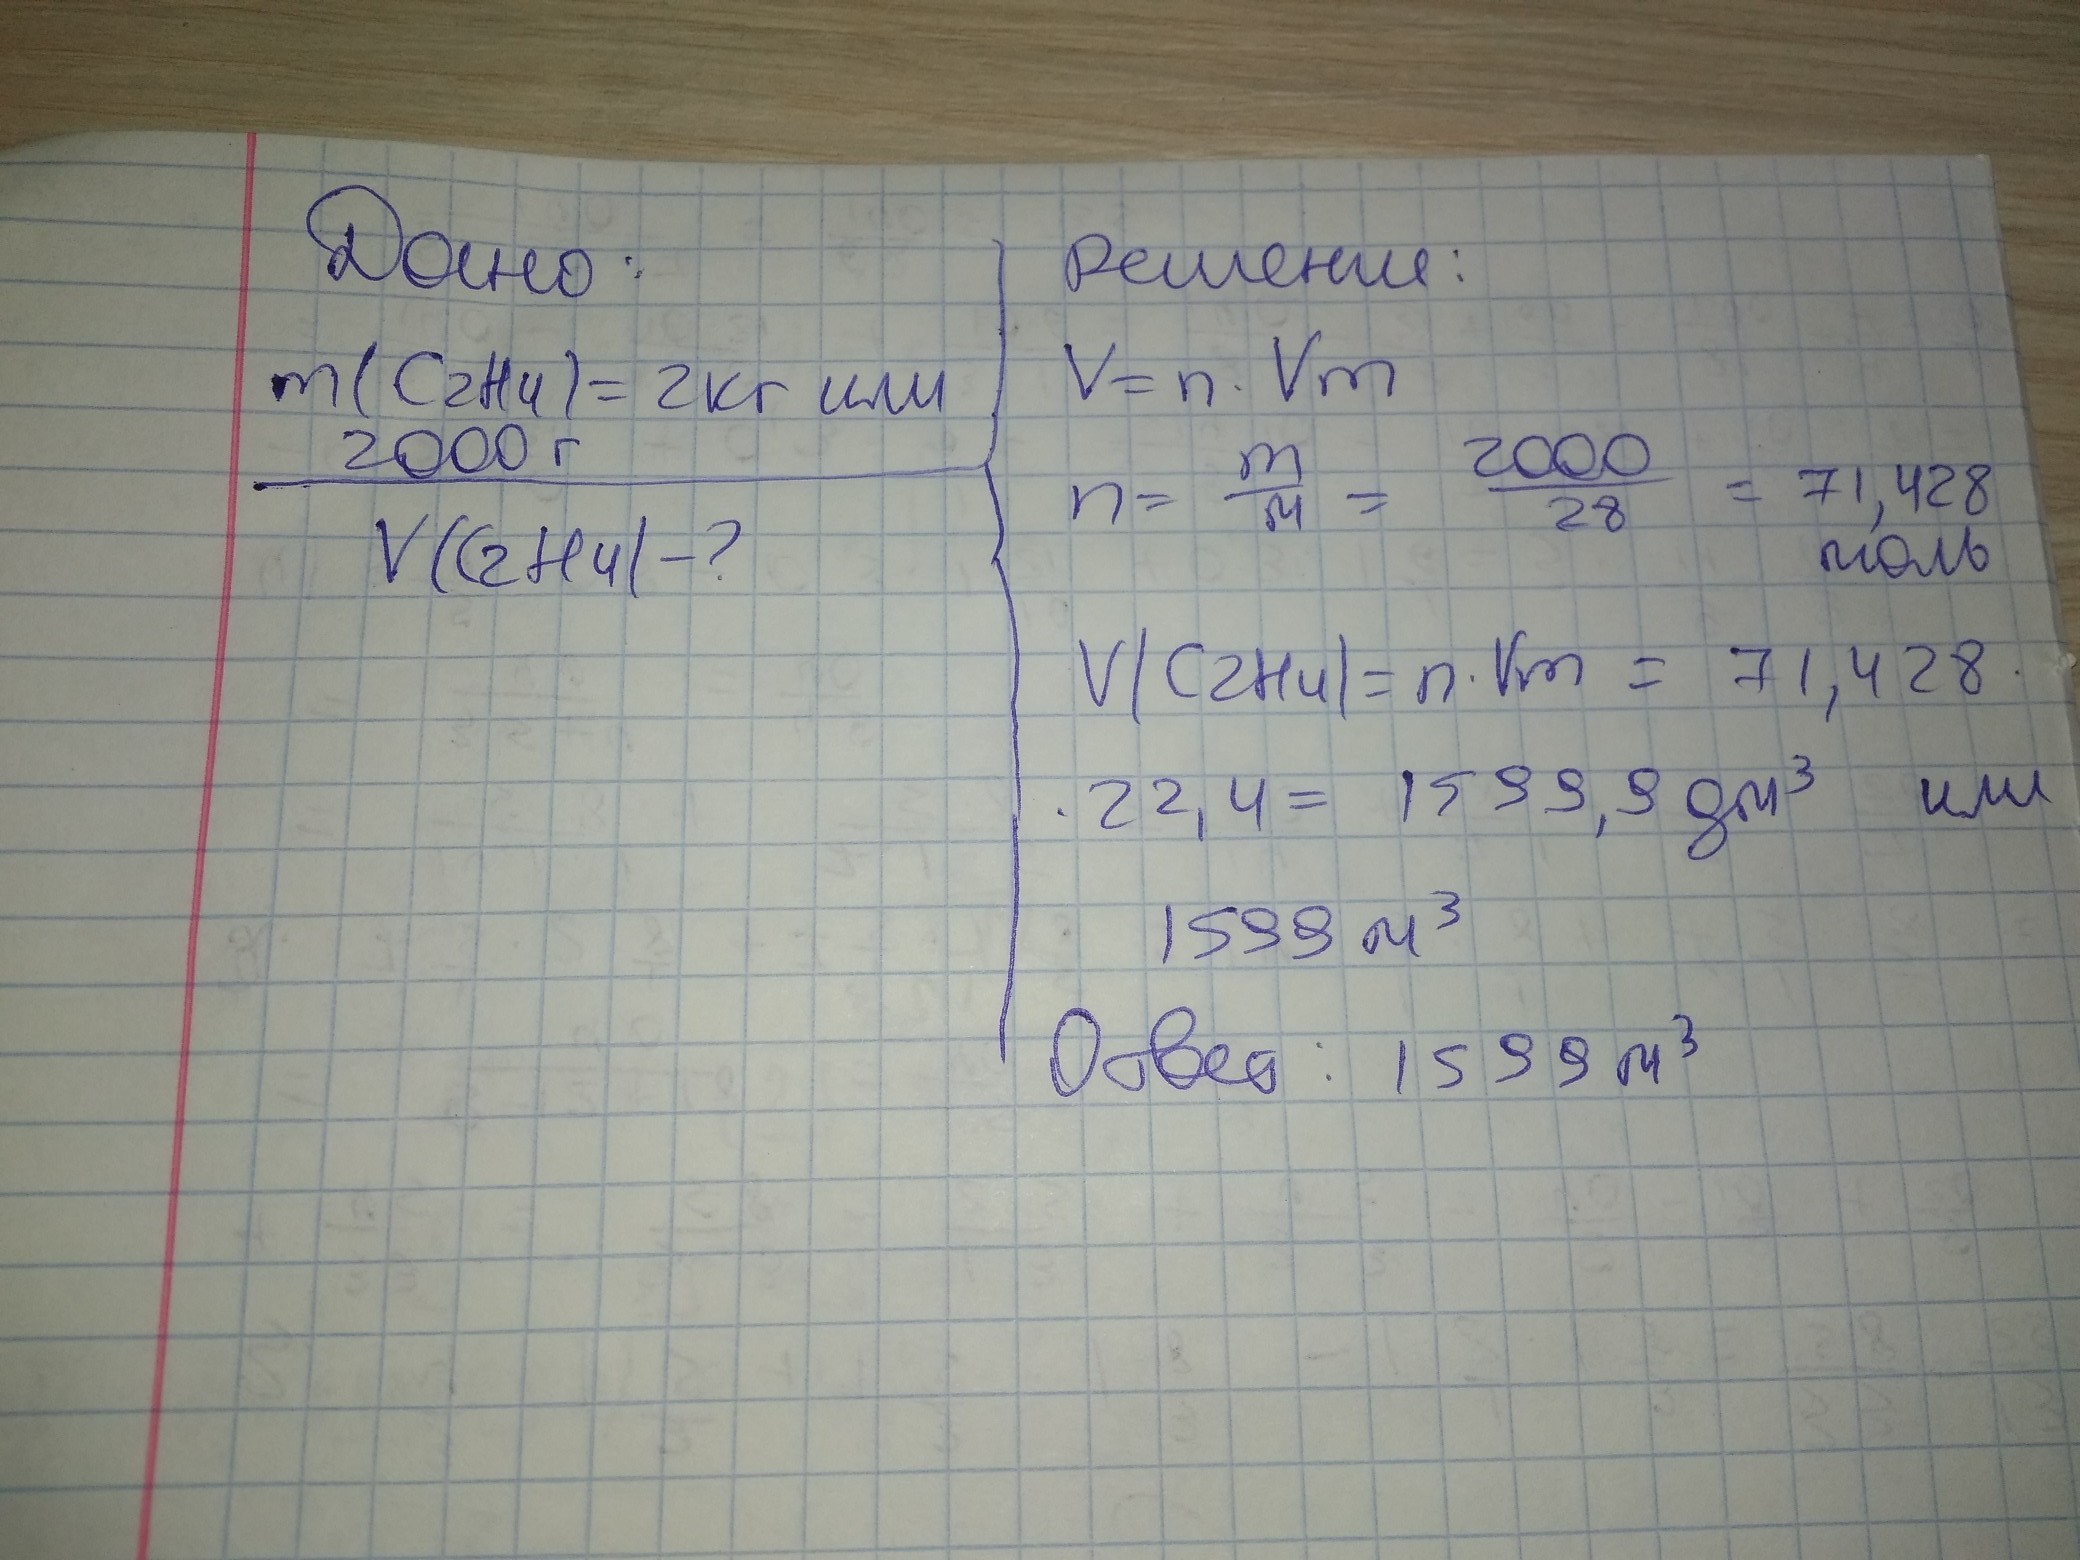 Дано:
m(C2H4)= 2кг или
2000 г
V(C2H4)-?
Решение:
V=n·Vm
n= m/M = 2000/28 = 71,428
моль
V(C2H4)=n·Vm = 71,428·
·22,4= 1599,9 дм³ или
1599 м³
Ответ: 1599 м³